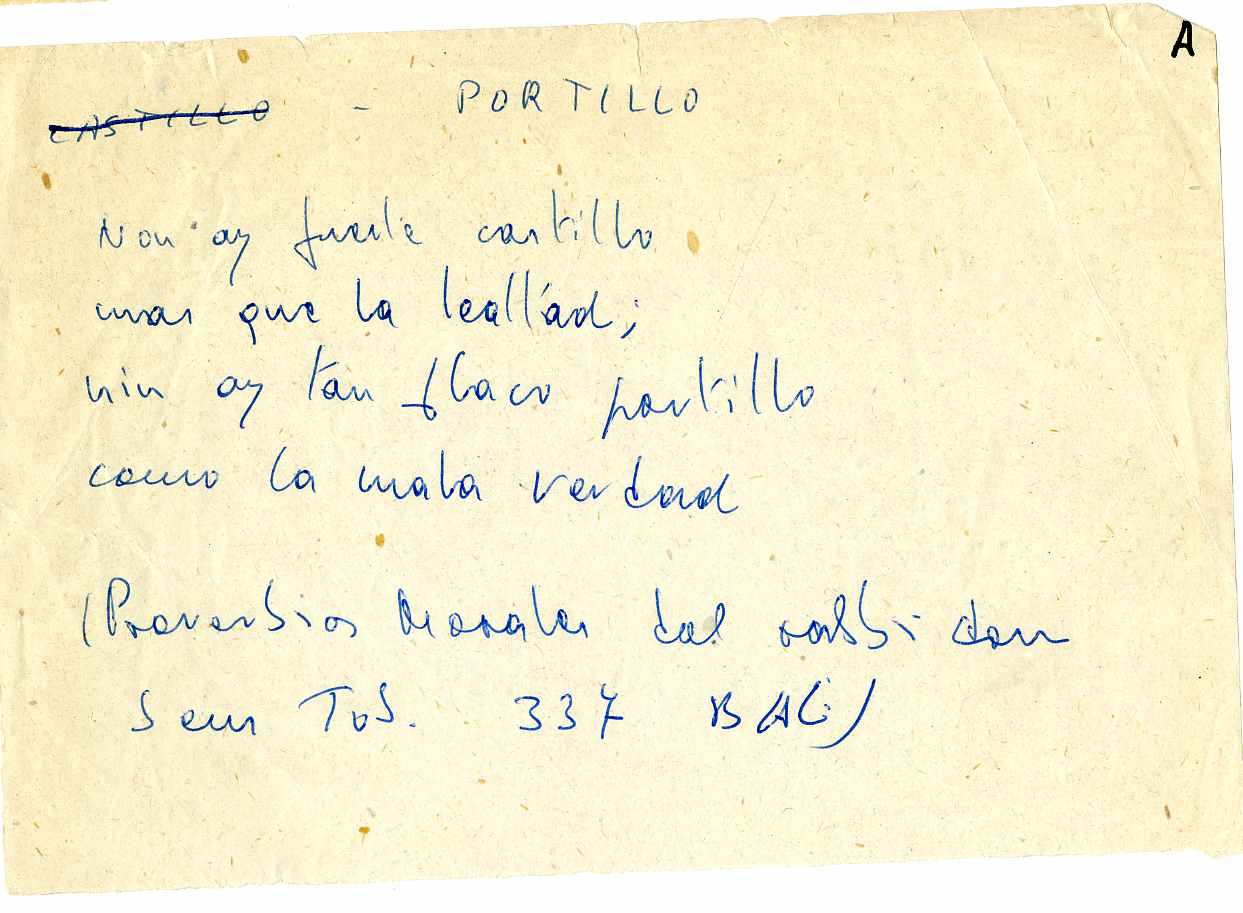 A
CASTILLO - PORTILLO
Non ay fuerte castillo
mas que la lealtad;
nin ay tan flaco portillo
como la mala verdad
(Proverbios Morales del rabbi don
Sem Tob. 337 BAE)